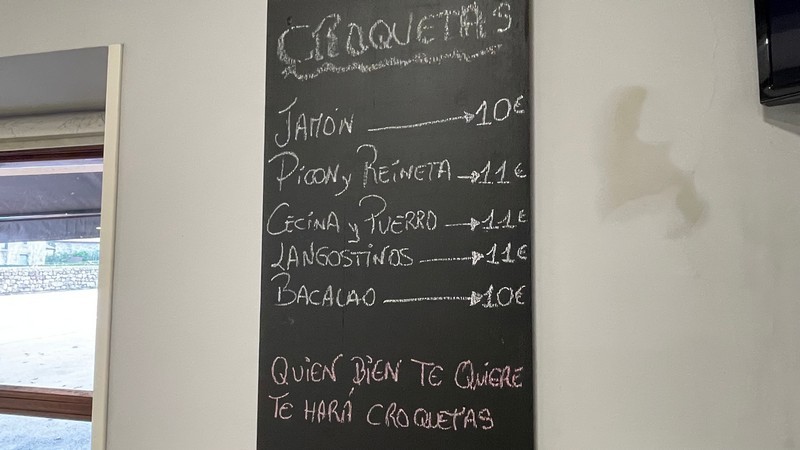 CROQUETAS
JAMÓN → 10€
PICON y REINETA → 11€
CECINA y PUERRO → 11€
LANGOSTINOS → 11€
BACALAO → 10€
QUIEN BIEN TE QUIERE
TE HARÁ CROQUETAS